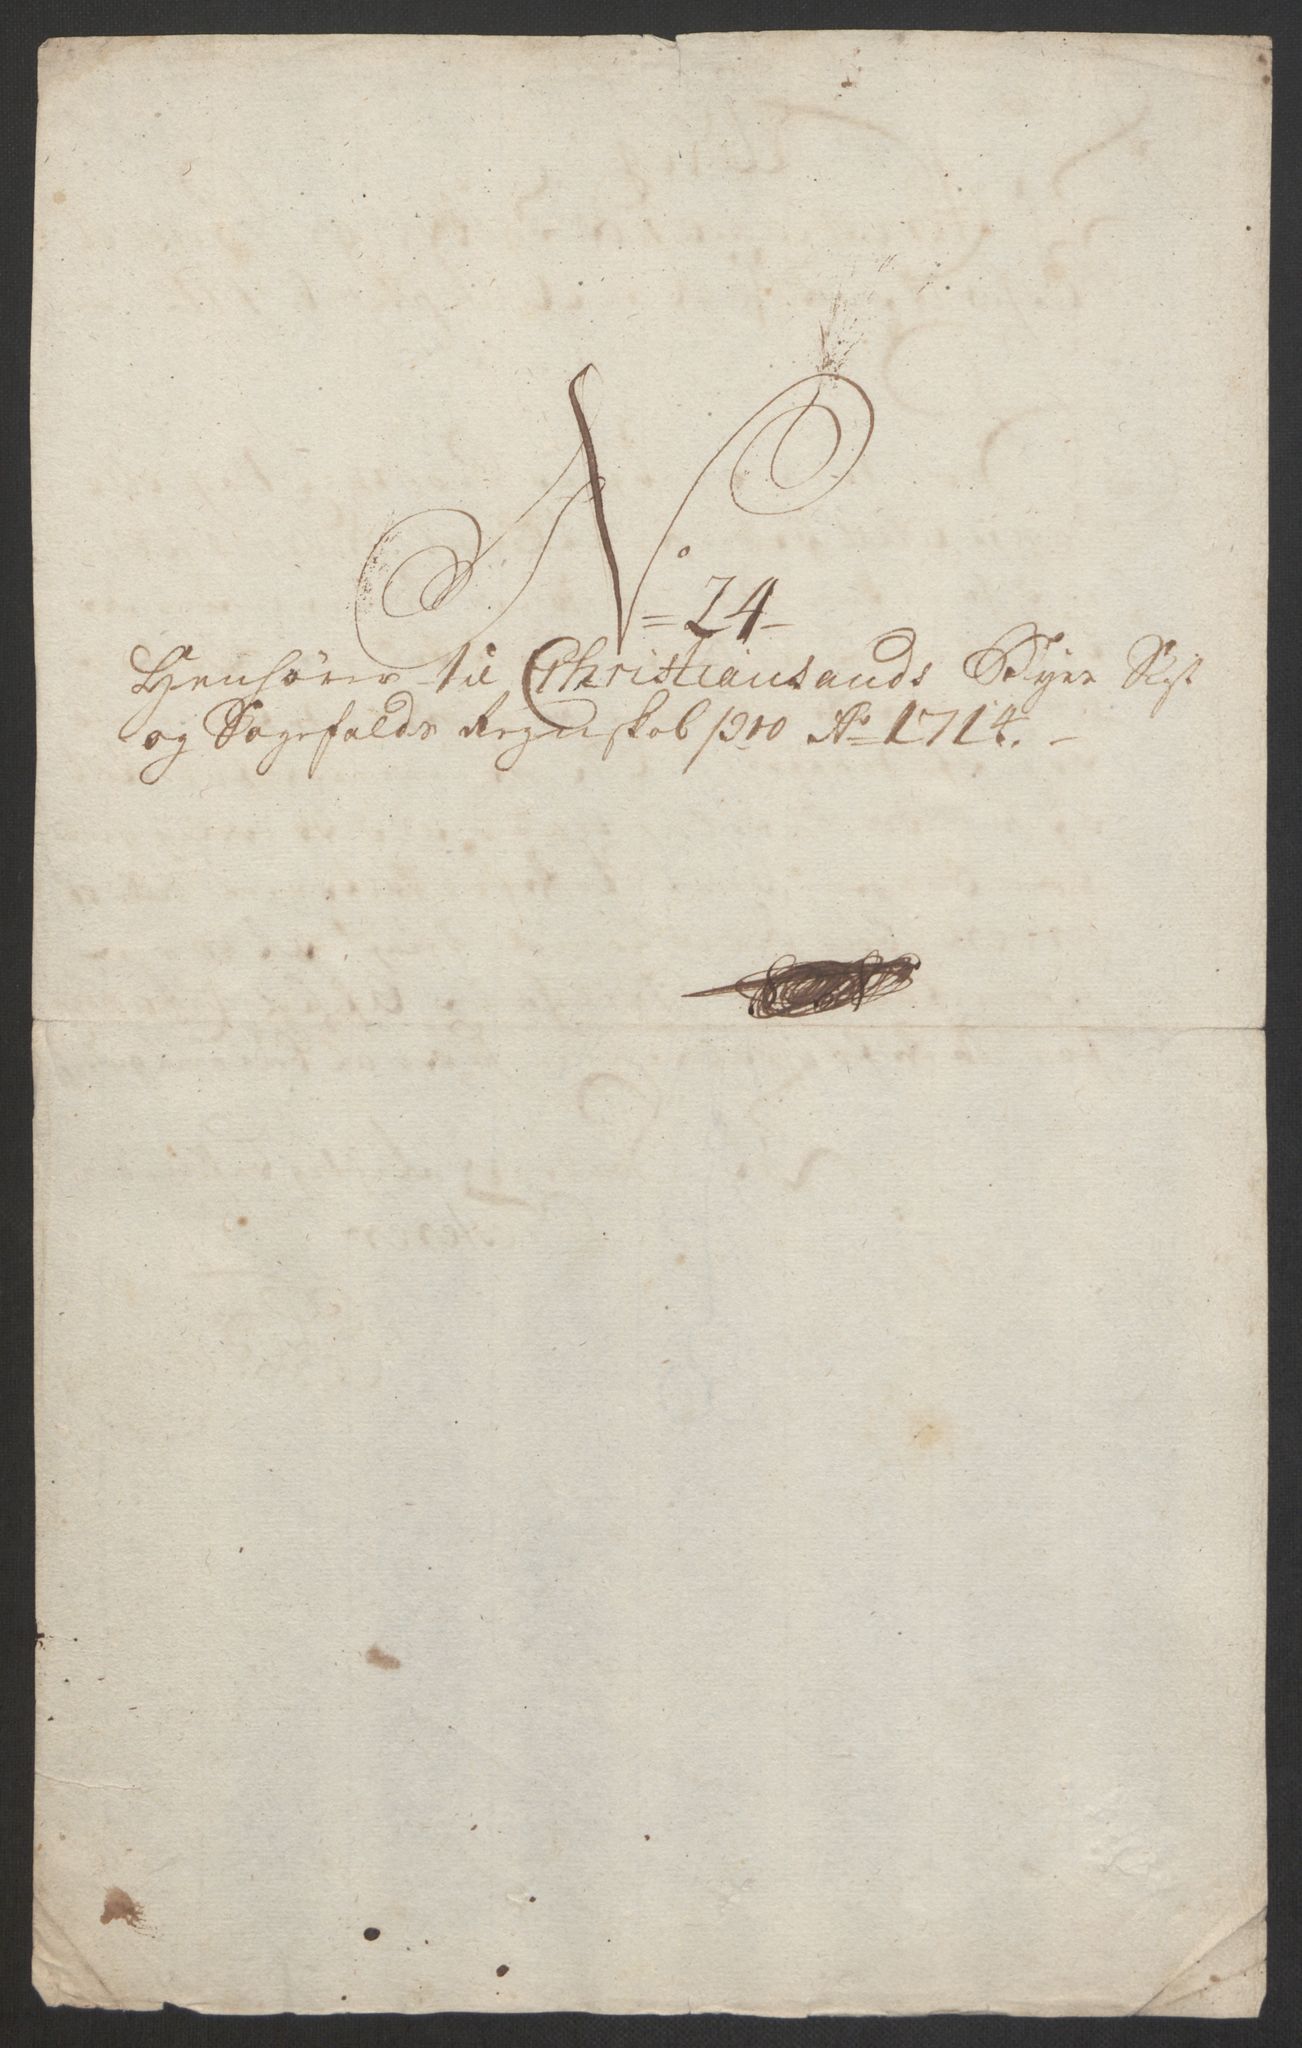 No = 24 -
Henhører til Christiansands Byes Sigt
og Sagefalds Regnskab pro Ao 1714. -